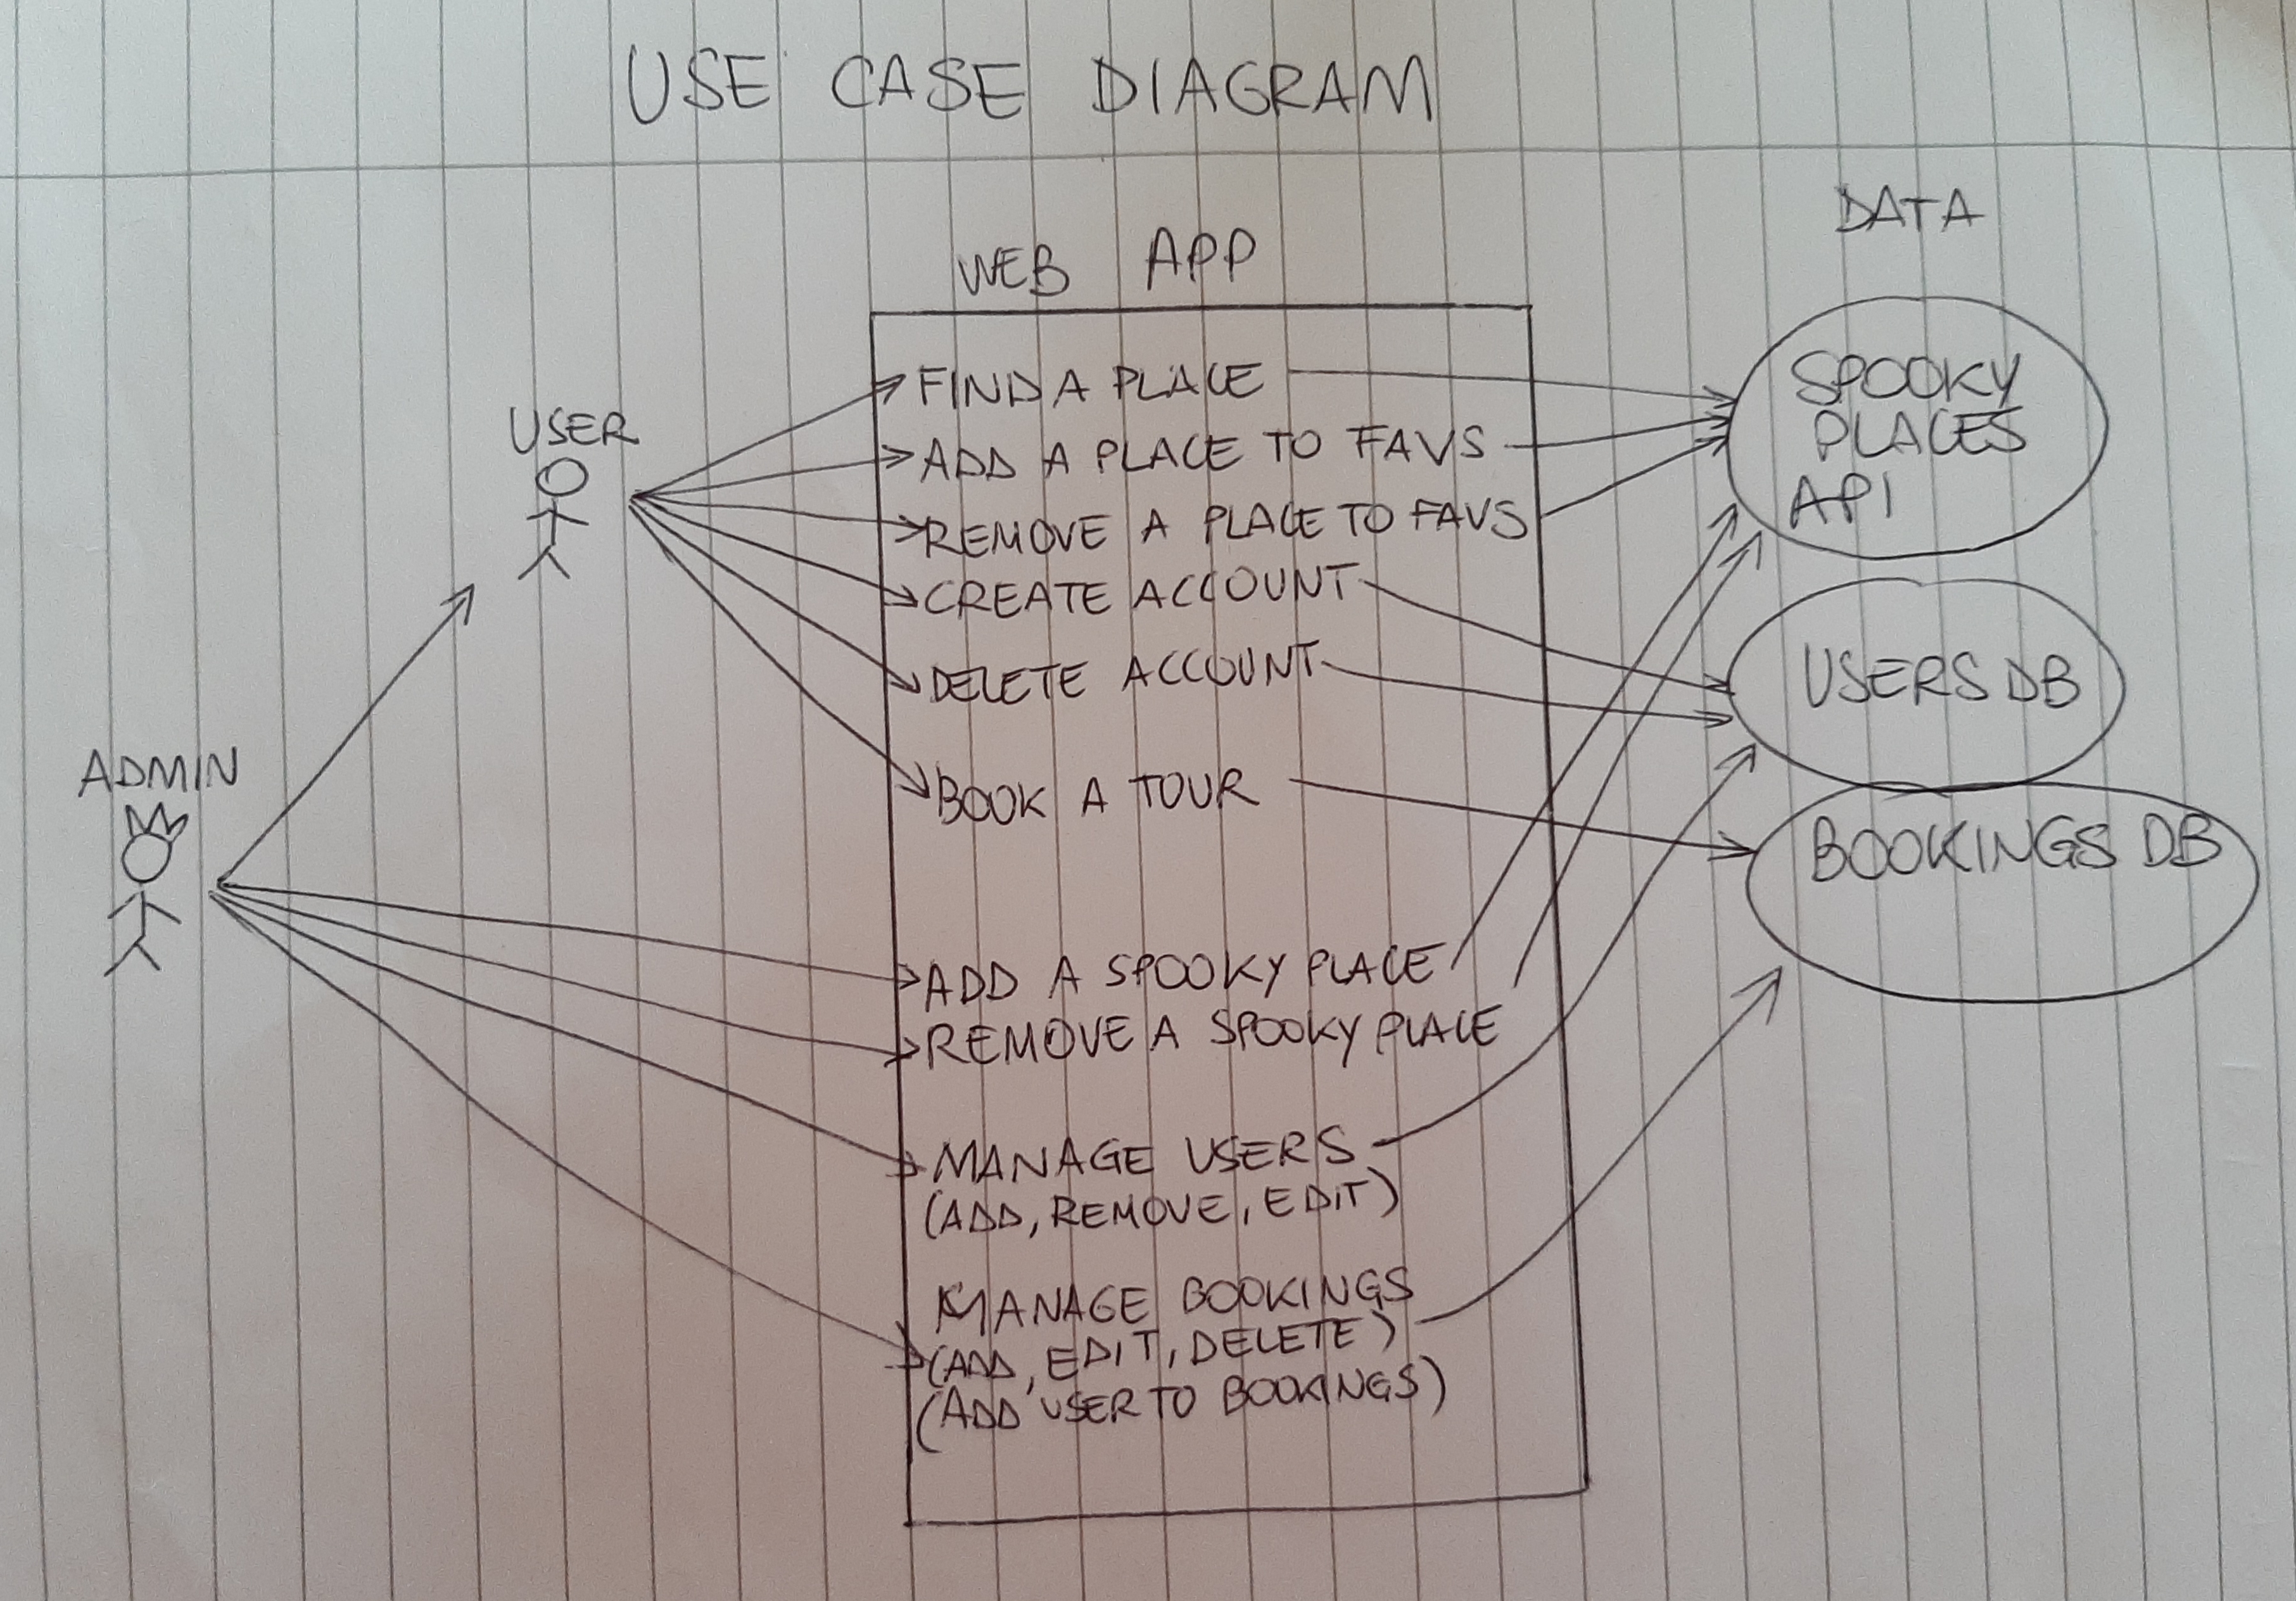 USE CASE DIAGRAM
DATA
WEB APP
USER
ADMIN
FIND A PLACE
ADD A PLACE TO FAVS
REMOVE A PLACE TO FAVS
CREATE ACCOUNT
DELETE ACCOUNT
BOOK A TOUR
ADD A SPOOKY PLACE
REMOVE A SPOOKY PLACE
MANAGE USERS
(ADD, REMOVE, EDIT)
MANAGE BOOKINGS
(ADD, EDIT, DELETE)
(ADD USER TO BOOKINGS)
SPOOKY
PLACES
API
USERS DB
BOOKINGS DB